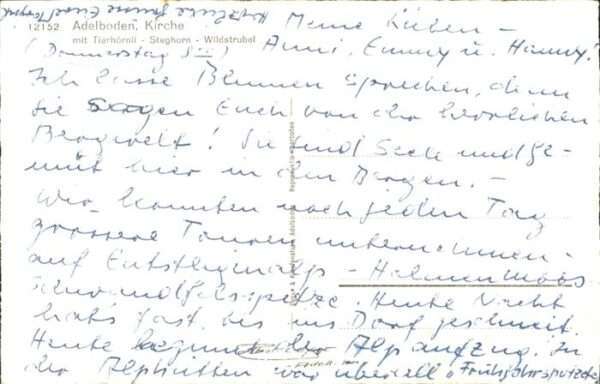 Herzliche Grüsse
12152 Adelboden, Kirche
mit Tierhörnli - Steghorn - Wildstrubel
(Donnerstag
Meine Lieben -
Anni, Emmy u. Hanny!
Ich lasse Blumen sprechen, denn
sie sagen Euch von der herrlichen
Bergwelt! Sie sind Seele und Ge-
müt hier in den Bergen. -
Wir konnten noch jeden Tag
grössere Touren unternehmen -
auf Entstligenalp - Hahnenmoos
Heute Nacht
hats fast bis ins Dorf geschneit.
Heute beginnt der Alpaufzug. In
der Alphütten war überall Frühjahrsputzete